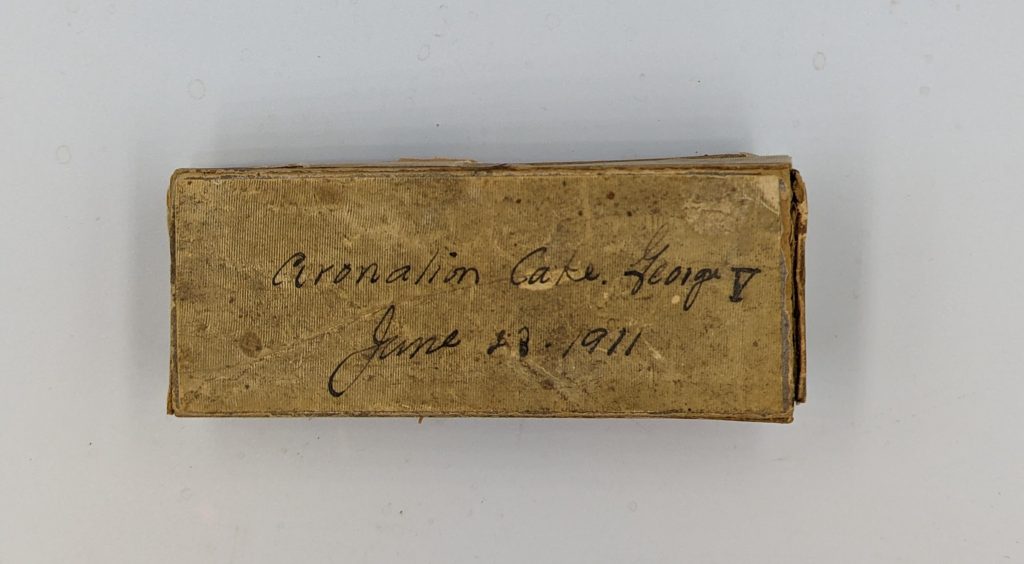 Coronation Cake. George V
June 23. 1911